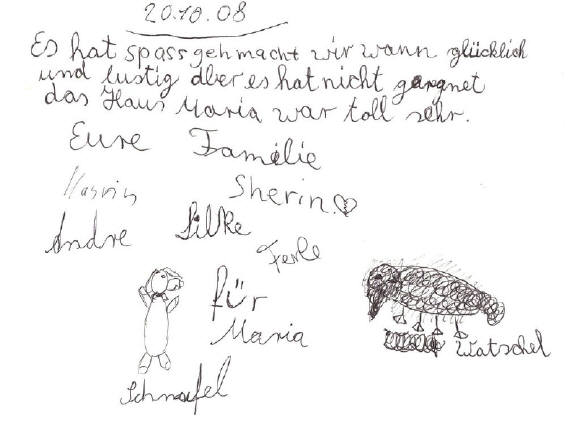 20.10.08
Es hat spass gehmacht wir wann glücklich
und lustig dber es hat nicht gergnet
das Haus Maria war toll sehr.
Eure Familie
Sherin
Andre Silke
für
Maria
Watschel
Schnoufel